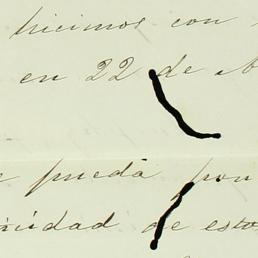 hicimos con
en 22 de
pueda por
de esto